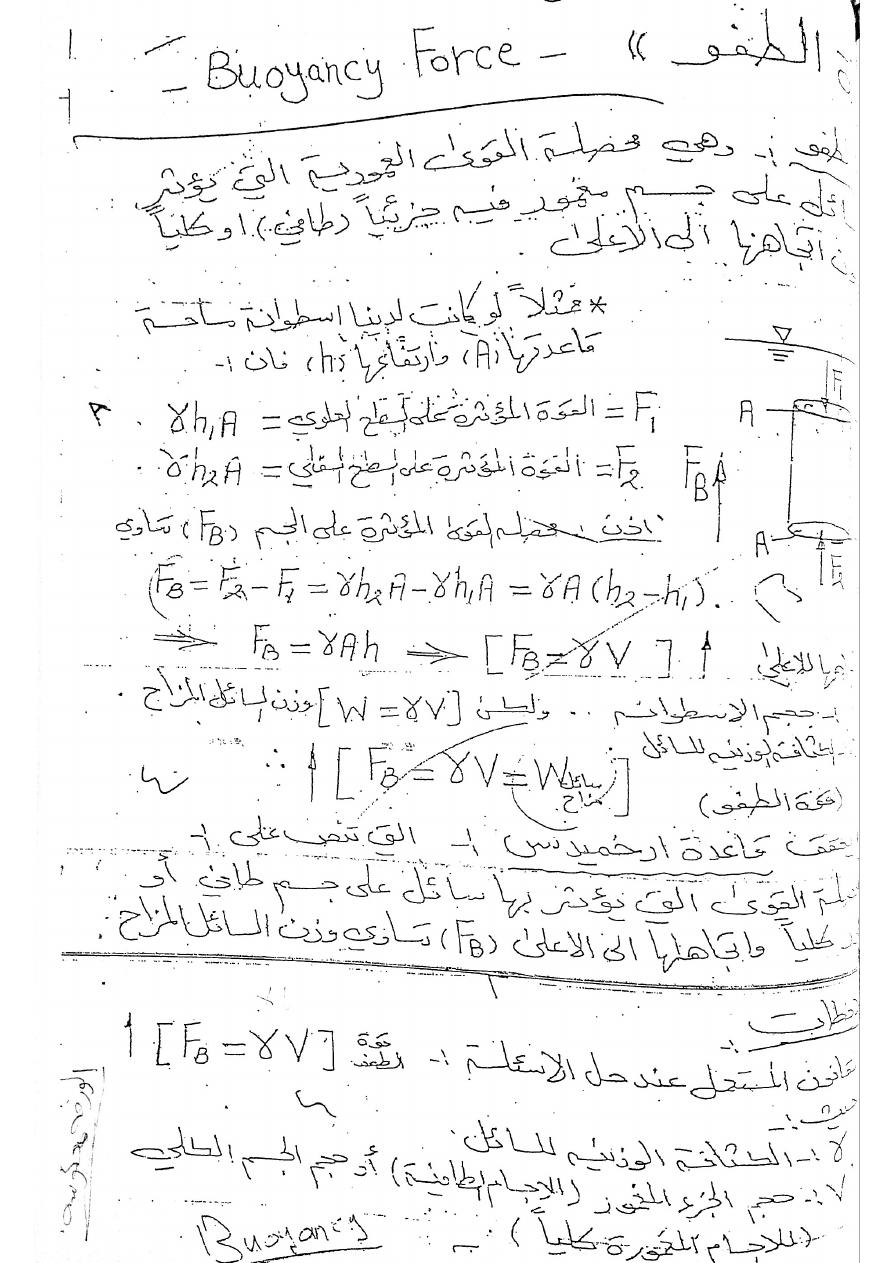 الطفو » - Buoyancy Force -
طفو :- وهي محصلة القوى العمودية التي يؤثر
ائل على جسم مغمور فيه جزئياً (طافي) او كلياً
ن اتجاهها الى الاعلى
* مثلاً لو كانت لدينا اسطوانة مساحة
قاعدتها (A) وارتفاعها (h) فان :-
F₁ = القوة المؤثرة على السطح العلوي = γh₁A
F₂ = القوة المؤثرة على السطح السفلي = γh₂A
F₁
A
F_B
A
F₂
اذن : محصله القوى المؤثرة على الجسم (F_B) تساوي
F_B = F₂ - F₁ = γh₂A - γh₁A = γA(h₂-h₁).
⇒ F_B = γAh ⇒ [F_B = γV] ↑ للاعلى
:- حجم الاسطوانه .. ولكن [W = γV] وزن السائل المزاح .
الكثافة الوزنيه للسائل
∴ ↑ [F_B = γV = W سائل مزاح]
(قوة الطفو)
قاعدة ارخميدس :- التي تنص على :-
لة القوى التي يؤثر بها سائل على جسم طافي أو
كلياً واتجاهها الى الاعلى (F_B) تساوي وزن السائل المزاح .
حظات :-
قانون المستعمل عند حل الاسئلة :- قوة الطفو [F_B = γV] ↑
حيث :-
γ :- الكثافة الوزنيه للسائل .
V :- حجم الجزء المغمور (للاجسام الطافية) أو حجم الجسم الكلي
(للاجسام المغمورة كلياً) -
Buoyancy